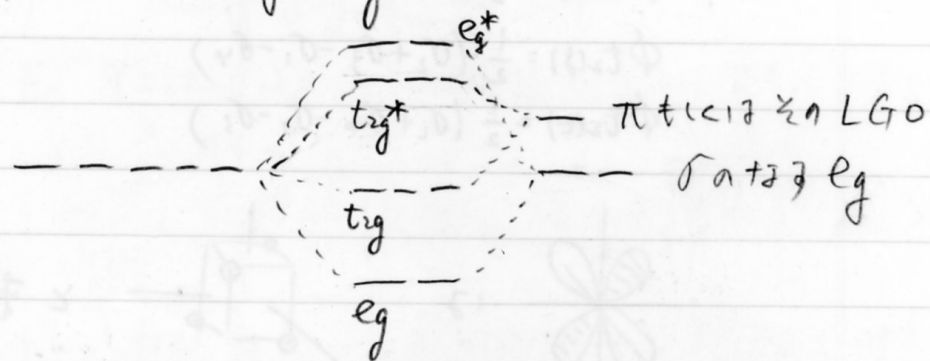 eg*
t2g*
π もしくは その LGO
σのなす eg
t2g
eg